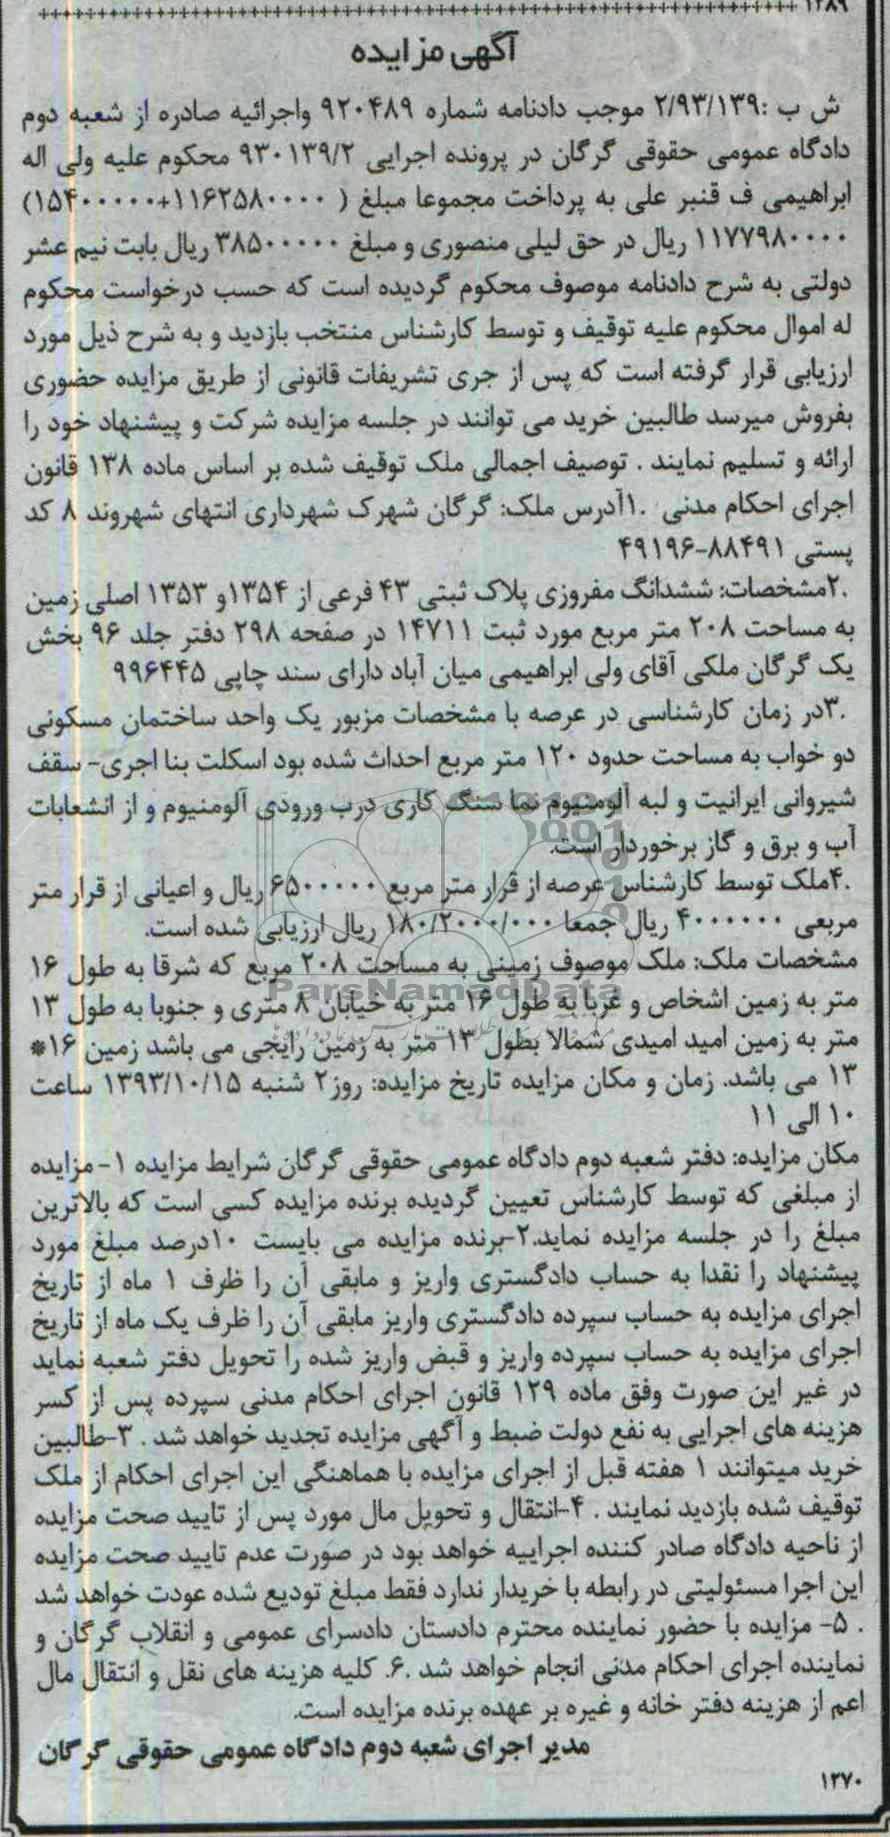 ۱۲۸۹
آگهی مزایده
ش ب :۲/۹۳/۱۳۹ موجب دادنامه شماره ۹۲۰۴۸۹ واجرائیه صادره از شعبه دوم
دادگاه عمومی حقوقی گرگان در پرونده اجرایی ۹۳۰۱۳۹/۲ محکوم علیه ولی اله
ابراهیمی ف قنبر علی به پرداخت مجموعا مبلغ ( ۱۱۶۲۵۸۰۰۰۰+۱۵۴۰۰۰۰۰)
۱۱۷۷۹۸۰۰۰۰ ریال در حق لیلی منصوری و مبلغ ۳۸۵۰۰۰۰۰ ریال بابت نیم عشر
دولتی به شرح دادنامه موصوف محکوم گردیده است که حسب درخواست محکوم
له اموال محکوم علیه توقیف و توسط کارشناس منتخب بازدید و به شرح ذیل مورد
ارزیابی قرار گرفته است که پس از جری تشریفات قانونی از طریق مزایده حضوری
بفروش میرسد طالبین خرید می توانند در جلسه مزایده شرکت و پیشنهاد خود را
ارائه و تسلیم نمایند . توصیف اجمالی ملک توقیف شده بر اساس ماده ۱۳۸ قانون
اجرای احکام مدنی .۱آدرس ملک: گرگان شهرک شهرداری انتهای شهروند ۸ کد
پستی ۸۸۴۹۱-۴۹۱۹۶
.۲مشخصات: ششدانگ مفروزی پلاک ثبتی ۴۳ فرعی از ۱۳۵۴و ۱۳۵۳ اصلی زمین
به مساحت ۲۰۸ متر مربع مورد ثبت ۱۴۷۱۱ در صفحه ۲۹۸ دفتر جلد ۹۶ بخش
یک گرگان ملکی آقای ولی ابراهیمی میان آباد دارای سند چاپی ۹۹۶۴۴۵
.۳در زمان کارشناسی در عرصه با مشخصات مزبور یک واحد ساختمان مسکونی
دو خواب به مساحت حدود ۱۲۰ متر مربع احداث شده بود اسکلت بنا اجری- سقف
شیروانی ایرانیت و لبه آلومنیوم نما سنگ کاری درب ورودی آلومنیوم و از انشعابات
آب و برق و گاز برخوردار است.
.۴ملک توسط کارشناس عرصه از قرار متر مربع ۶۵۰۰۰۰۰ ریال و اعیانی از قرار متر
مربعی ۴۰۰۰۰۰۰ ریال جمعا ۱۸۰/۲۰۰۰/۰۰۰ ریال ارزیابی شده است.
مشخصات ملک: ملک موصوف زمینی به مساحت ۲۰۸ مربع که شرقا به طول ۱۶
ParsNamadData
متر به زمین اشخاص و غربا به طول ۱۶ متر به خیابان ۸ متری و جنوبا به طول ۱۳
متر به زمین امید امیدی شمالا بطول ۱۳ متر به زمین رایجی می باشد زمین ۱۶*
۱۳ می باشد. زمان و مکان مزایده تاریخ مزایده: روز۲ شنبه ۱۳۹۳/۱۰/۱۵ ساعت
۱۰ الی ۱۱
مکان مزایده: دفتر شعبه دوم دادگاه عمومی حقوقی گرگان شرایط مزایده ۱-مزایده
از مبلغی که توسط کارشناس تعیین گردیده برنده مزایده کسی است که بالاترین
مبلغ را در جلسه مزایده نماید.۲-برنده مزایده می بایست ۱۰درصد مبلغ مورد
پیشنهاد را نقدا به حساب دادگستری واریز و مابقی آن را ظرف ۱ ماه از تاریخ
اجرای مزایده به حساب سپرده دادگستری واریز مابقی آن را ظرف یک ماه از تاریخ
اجرای مزایده به حساب سپرده واریز و قبض واریز شده را تحویل دفتر شعبه نماید
در غیر این صورت وفق ماده ۱۲۹ قانون اجرای احکام مدنی سپرده پس از کسر
هزینه های اجرایی به نفع دولت ضبط و آگهی مزایده تجدید خواهد شد . ۳-طالبین
خرید میتوانند ۱ هفته قبل از اجرای مزایده با هماهنگی این اجرای احکام از ملک
توقیف شده بازدید نمایند . ۴-انتقال و تحویل مال مورد پس از تایید صحت مزایده
از ناحیه دادگاه صادر کننده اجراییه خواهد بود در صورت عدم تایید صحت مزایده
این اجرا مسئولیتی در رابطه با خریدار ندارد فقط مبلغ تودیع شده عودت خواهد شد
. ۵- مزایده با حضور نماینده محترم دادستان دادسرای عمومی و انقلاب گرگان و
نماینده اجرای احکام مدنی انجام خواهد شد .۶. کلیه هزینه های نقل و انتقال مال
اعم از هزینه دفتر خانه و غیره بر عهده برنده مزایده است.
مدیر اجرای شعبه دوم دادگاه عمومی حقوقی گرگان
۱۲۷۰